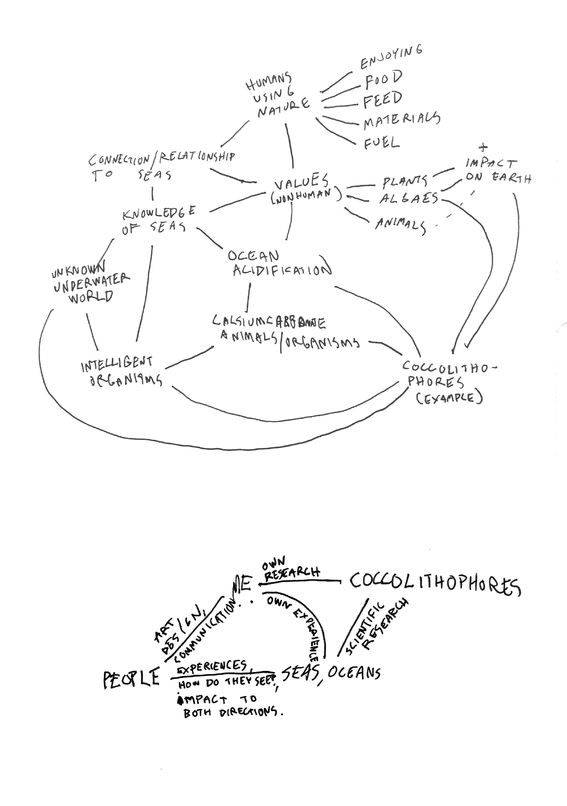 HUMANS
USING
NATURE
ENJOYING
FOOD
FEED
MATERIALS
FUEL
CONNECTION/RELATIONSHIP
TO SEAS
VALUES
(NONHUMAN)
PLANTS
ALGAES
ANIMALS
+
IMPACT
ON EARTH
KNOWLEDGE
OF SEAS
OCEAN
ACIDIFICATION
UNKNOWN
UNDERWATER
WORLD
ANIMALS/ORGANISMS
INTELLIGENT
ORGANISMS
COCCOLITHO-
PHORES
(EXAMPLE)
ME
OWN
RESEARCH
COCCOLITHOPHORES
ART
DESIGN,
COMMUNICATION
OWN EXPERIENCE
SCIENTIFIC
RESEARCH
PEOPLE
EXPERIENCES,
HOW DO THEY SEE?,
IMPACT TO
BOTH DIRECTIONS.
SEAS, OCEANS